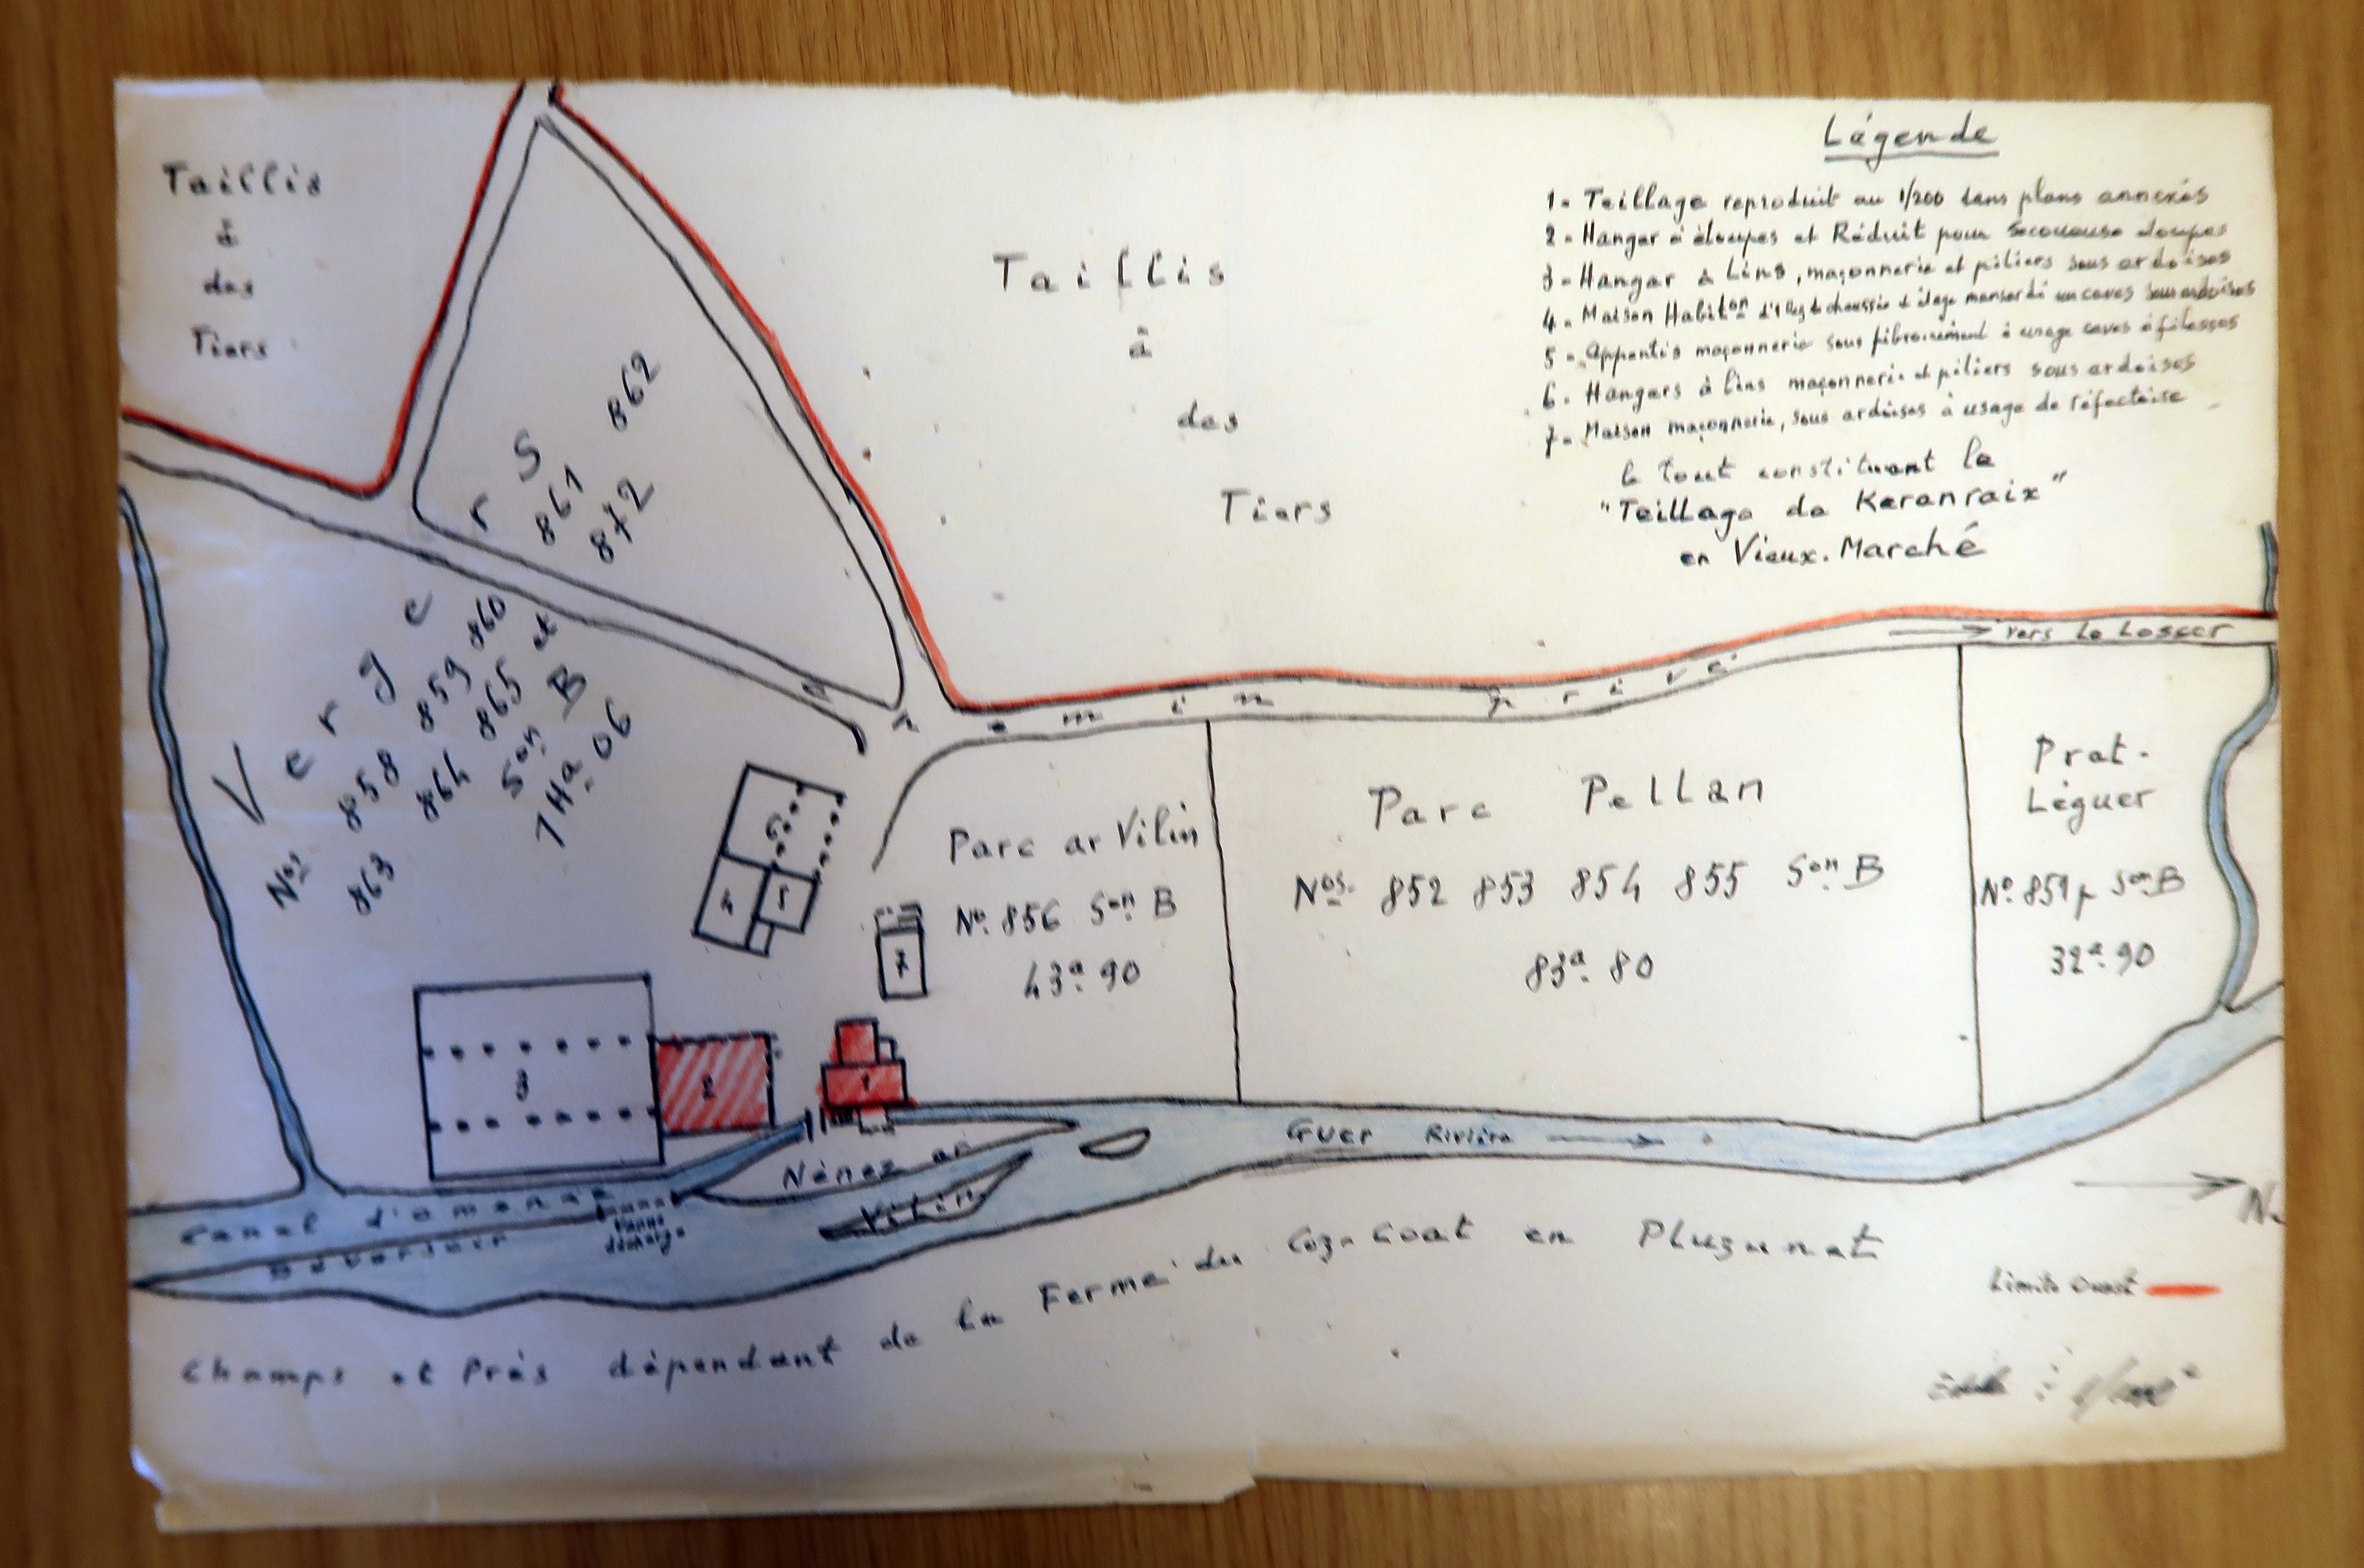 Légende
1- Teillage reproduit au 1/200 dans plans annexés
2- Hangar à étoupes et Réduit pour Secoueuse étoupes
3- Hangar à Lins, maçonnerie et piliers sous ardoises
4- Maison Habit<sup>on</sup> chaussée et étage mansardé caves sous ardoises
5- Appentis maçonnerie sous fibrociment à usage caves à filasses
6- Hangars à lins maçonnerie et piliers sous ardoises
7- Maison maçonnerie, sous ardoises à usage de réfectoire
le tout constituant le
"Teillage de Keranraix"
en Vieux-Marché
Taillis
à
des
Tiers
Taillis
à
des
Tiers
Vergers
Nos 858 859 860 861 862
863 864 865 et 872
Son B
1Ha. 06
Chemin privé
vers Le Losser
6
4
5
7
3
2
1
Parc ar Vilin
No. 856 Son B
43a. 90
Parc Pellan
Nos. 852 853 854 855 Son B
83a. 80
Prat-
Léguer
No. 851p Son B
32a. 90
Canal d'amenée
Déversoir
Vanne
décharge
Nénez ar
Vilin
Guer Rivière
N.
Champs et Prés dépendant de la Ferme du Coz-Coat en Pluzunet
Limite Ouest